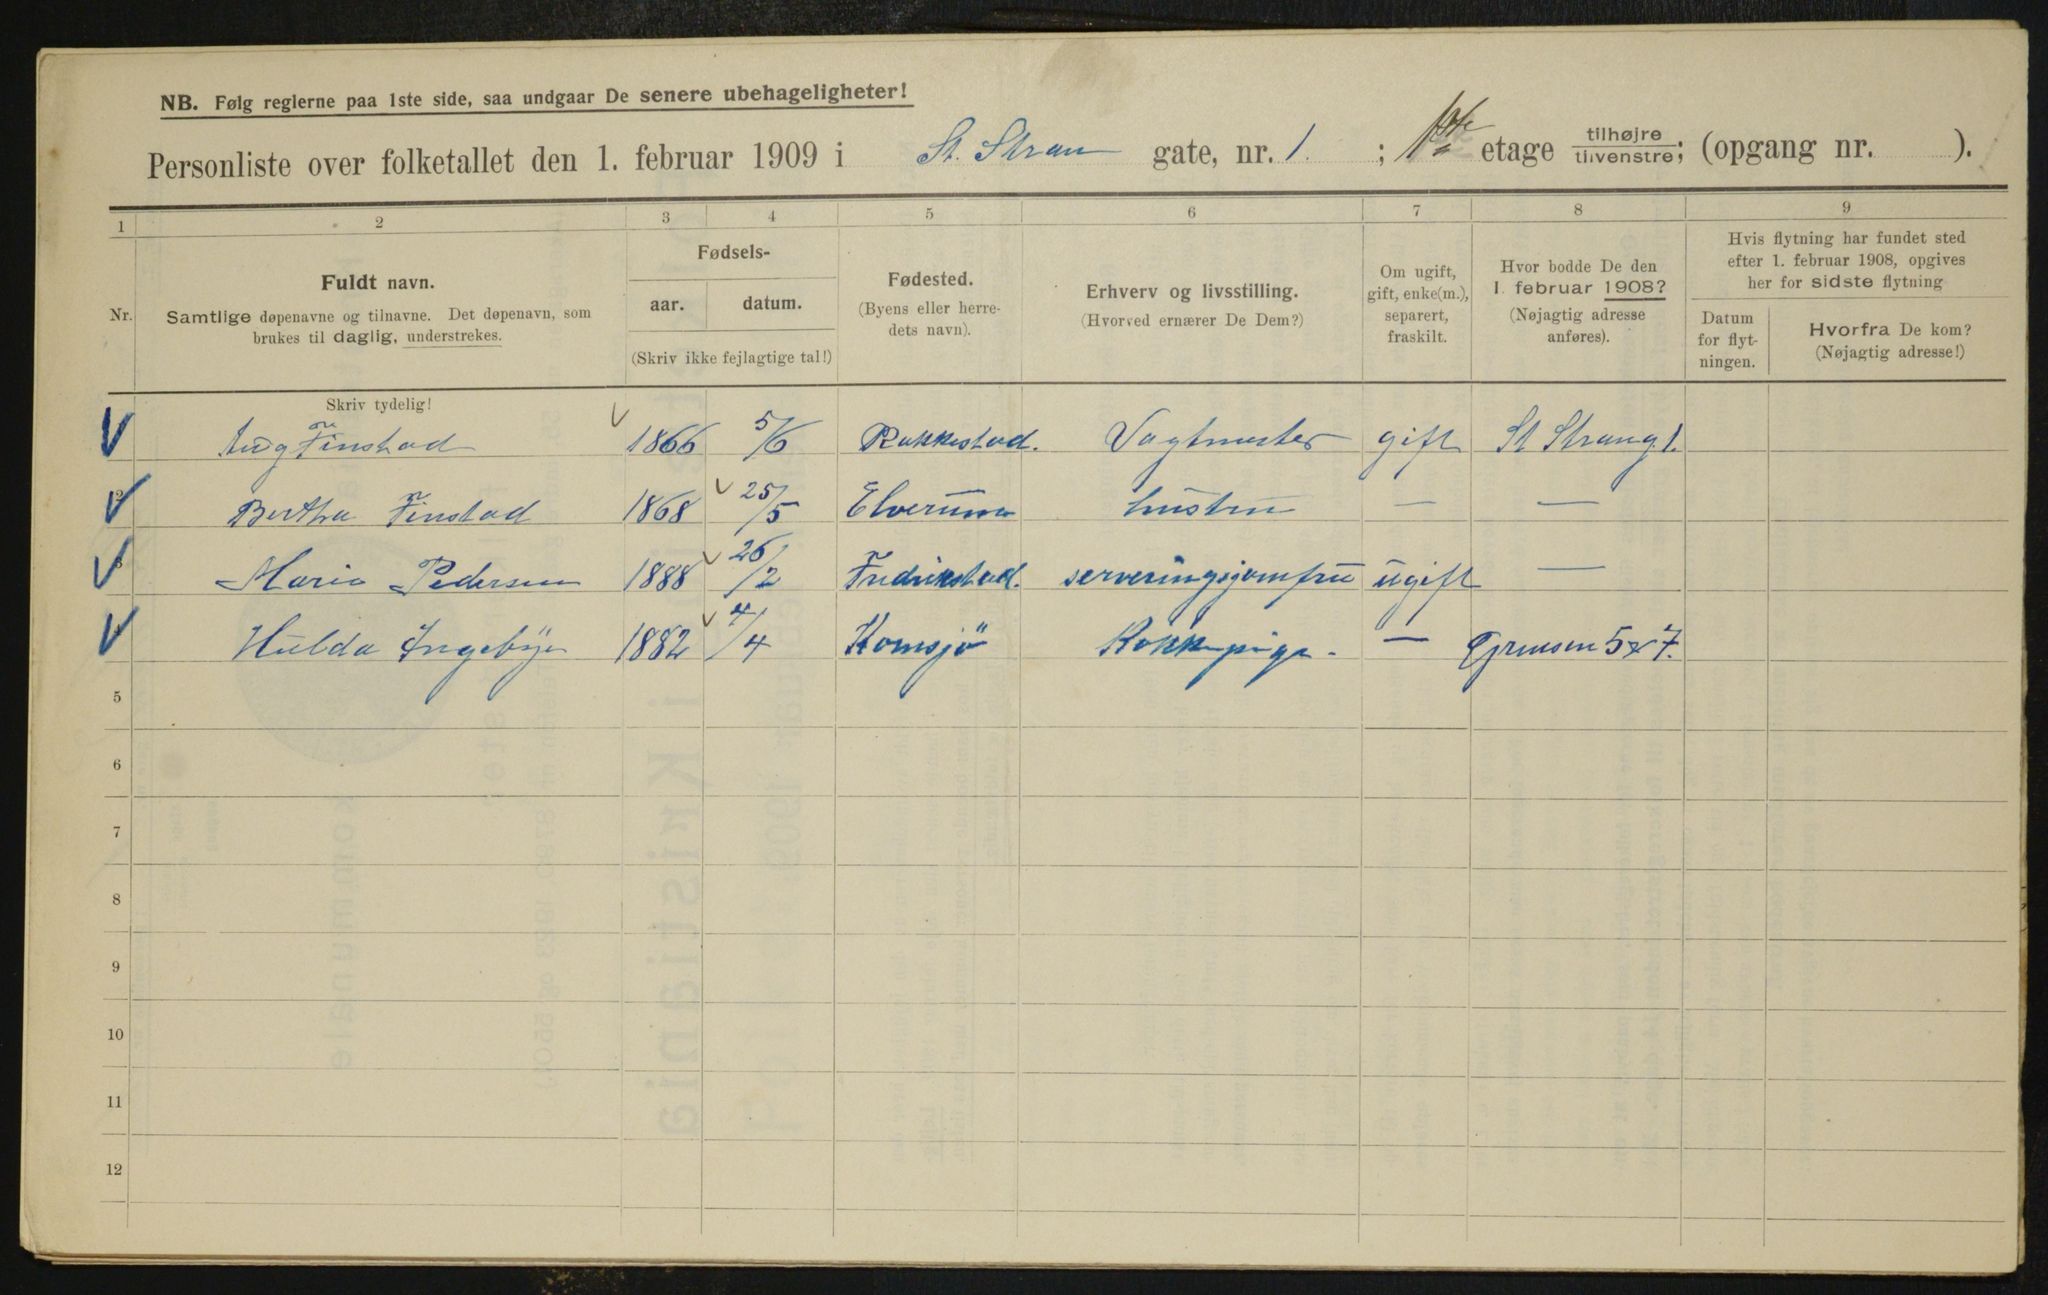 NB. Følg reglerne paa 1ste side, saa undgaar De senere ubehageligheter!
Personliste over folketallet den 1. februar 1909 i St. Stran gate, nr. 1. ; 1ste etage tilhøjre / tilvenstre; (opgang nr. ).
1 2 3 4 5 6 7 8 9
Nr.
Fuldt navn.
Samtlige døpenavne og tilnavne. Det døpenavn, som
brukes til daglig, understrekes.
Fødsels-
aar. datum.
(Skriv ikke fejlagtige tal!)
Fødested.
(Byens eller herre-
dets navn).
Erhverv og livsstilling.
(Hvorved ernærer De Dem?)
Om ugift,
gift, enke(m.),
separert,
fraskilt.
Hvor bodde De den
1. februar 1908?
(Nøjagtig adresse
anføres).
Hvis flytning har fundet sted
efter 1. februar 1908, opgives
her for sidste flytning
Datum
for flyt-
ningen.
Hvorfra De kom?
(Nøjagtig adresse!)
Skriv tydelig!
Aug Finstad 1866 5/6 Rakkestad. Vagtmester gift St Strang. 1.
2 Bertha Finstad 1868 25/5 Elverum hustru — —
3 Marie Pedersen 1888 26/2 Fredrikstad. serveringsjomfru ugift —
Hulda Ingebye 1882 4/4 Kornsjö Kokkepige. — Grensen 5 & 7.
5
6
7
8
9
10
11
12